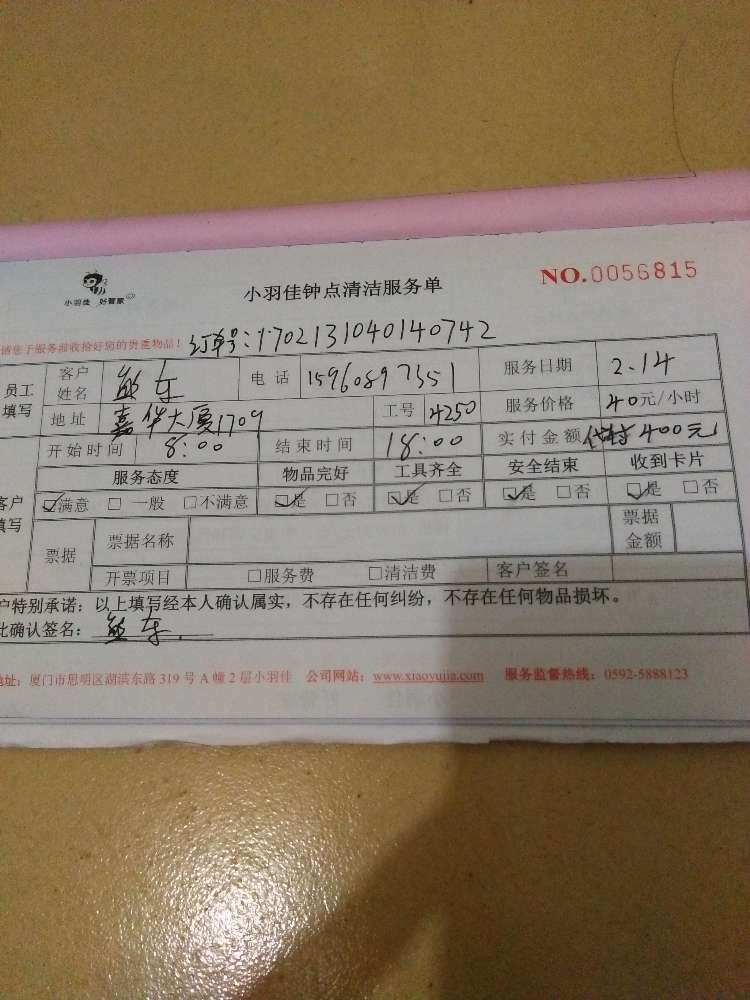 小羽佳 好管家
小羽佳钟点清洁服务单
NO.0056815
请您于服务前收拾好您的贵重物品!
订单号:1702131040140742
员工填写 客户姓名 电话 15960897351 服务日期 2.14
地址 嘉华大厦1709 工号 4250 服务价格 40元/小时
开始时间 8:00 结束时间 18:00 实付金额 400元
服务态度 物品完好 工具齐全 安全结束 收到卡片
☑满意 □一般 □不满意 ☑是 □否 ☑是 □否 ☑是 □否 ☑是 □否
客户填写 票据 票据名称 票据金额
开票项目 □服务费 □清洁费 客户签名
户特别承诺:以上填写经本人确认属实,不存在任何纠纷,不存在任何物品损坏。
此确认签名:
地址:厦门市思明区湖滨东路319号A幢2层小羽佳 公司网站:www.xiaoyujia.com 服务监督热线:0592-5888123